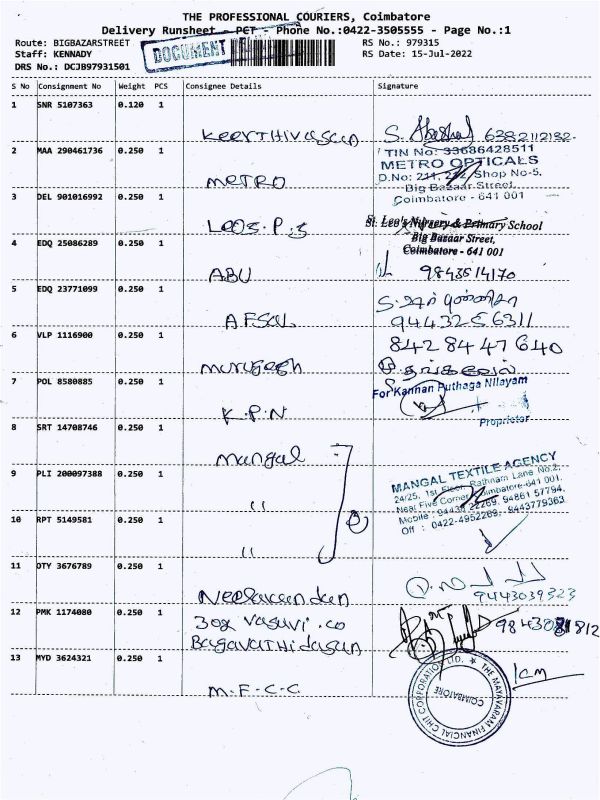 THE PROFESSIONAL COURIERS, Coimbatore
Delivery Runsheet - PCT - Phone No.:0422-3505555 - Page No.:1
Route: BIGBAZARSTREET RS No.: 979315
Staff: KENNADY DOCUMENT RS Date: 15-Jul-2022
DRS No.: DCJB97931501
S No Consignment No Weight PCS Consignee Details Signature
1 SNR 5107363 0.120 1
Keerthivasan S. 6382112132-
2 MAA 290461736 0.250 1 TIN No: 33686428511
METRO OPTICALS
METRO D.No: 211, 212, Shop No-5,
Big Bazaar Street,
3 DEL 901016992 0.250 1 Coimbatore - 641 001
LEOS.P.S St. Leo's Nursery & Primary School
4 EDQ 25086289 0.250 1 Big Bazaar Street,
Coimbatore - 641 001
ABU 9843514170
5 EDQ 23771099 0.250 1
AFSAL 9443256311
6 VLP 1116900 0.250 1 8428447640
murugesh தங்கவேல்
7 POL 8580885 0.250 1 For Kannan Puthaga Nilayam
K.P.N
Proprietor
8 SRT 14708746 0.250 1
mangal
9 PLI 200097388 0.250 1 MANGAL TEXTILE AGENCY
24/25, 1st Floor, Rathnam Lane No.2,
" Near Five Corner, Coimbatore-641 001.
10 RPT 5149581 0.250 1 Mobile : 94433 22269, 94861 57794,
Off : 0422-4952269, 9443779363
"
11 OTY 3676789 0.250 1
Neelakandan 9443039323
12 PMK 1174080 0.250 1
302 Vasuvi .co
Bagavathidasan
13 MYD 3624321 0.250 1
M.F.C.C
THE MAYAVARAM FINANCIAL CHIT CORPORATION LTD.
COIMBATORE